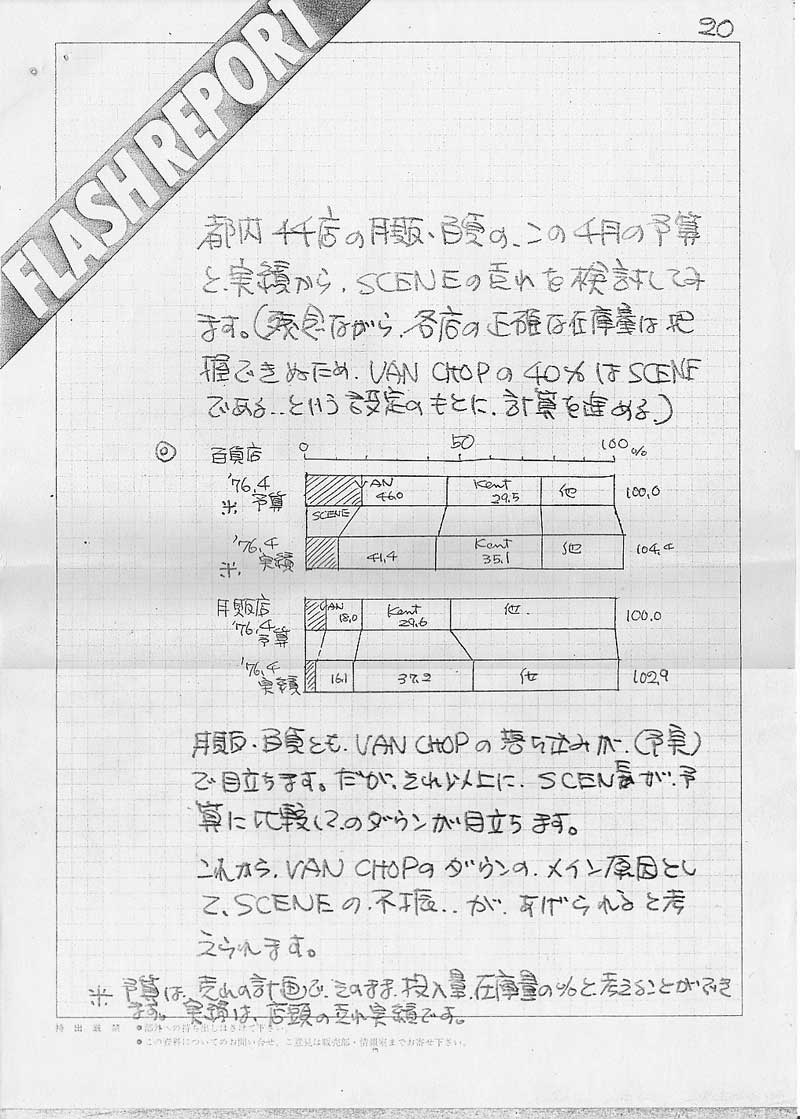 20
FLASH REPORT
都内44店の月販・百貨の、この4月の予算
と、実績から、SCENEの売れを検討してみ
ます。(残念ながら、各店の正確な在庫量は把
握できぬため、VAN CHOPの40%はSCENE
である、、という設定のもとに、計算を進める。)
◎ 百貨店 0 50 100%
'76,4 ※予算 VAN 46.0 Kent 29.5 他 100.0
SCENE
'76,4 ※実績 41.4 Kent 35.1 他 104.4
月販店
'76,4 予算 VAN 18.0 Kent 29.6 他 100.0
'76,4 実績 16.1 37.2 他 102.9
月販・百貨とも、VAN CHOPの落ち込みが、(予実)
で目立ちます。だが、それ以上に、SCENEが、予
算に比較しての、ダウンが目立ちます。
これから、VAN CHOPのダウンの、メイン原因とし
て、SCENEの、不振、、が、あげられると考
えられます。
※ 予算は、売れの計画で、そのまま、投入量、在庫量の%と、考えることができ
ます。実績は、店頭の売れ実績です。
持出厳禁 ●部外への持ち出しはさけて下さい。
●この資料についてのお問い合せ、ご意見は販売部・情報室までお寄せ下さい。